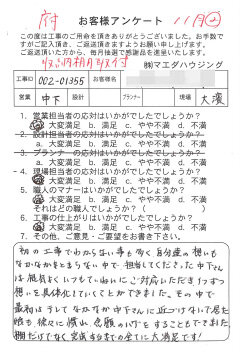 府
お客様アンケート
11月②
この度は工事のご用命を頂きありがとうございました。お手数で
すがご記入頂き、ご返送頂きますようお願い申し上げます。
ご返送頂いた方から、毎月抽選で感謝品を進呈いたします。
㈱マエダハウジング
工事ID 002-01355 お客様名
営業 中下 設計 プランナー 現場 大濱
1. 営業担当者の応対はいかがでしたでしょうか?
a. 大変満足 b. 満足 c. やや不満 d. 不満
2. 設計担当者の応対はいかがでしたでしょうか?
a. 大変満足 b. 満足 c. やや不満 d. 不満
3. プランナーの応対はいかがでしたでしょうか?
a. 大変満足 b. 満足 c. やや不満 d. 不満
4. 現場担当者の応対はいかがでしたでしょうか?
a. 大変満足 b. 満足 c. やや不満 d. 不満
5. 職人のマナーはいかがでしたでしょうか?
a. 大変満足 b. 満足 c. やや不満 d. 不満
それはどの職人でしょうか?( )
6. 工事の仕上がりはいかがでしたでしょうか?
a. 大変満足 b. 満足 c. やや不満 d. 不満
7. その他、ご意見・ご要望をお書き下さい。
初の工事でわからない事も多く自分達の想いも
なかなかまとまらない中で担当してくださった中下さん
は根気よくいつもていねいにご対応いただき1つずつ
想いを具体化していくことができました。その中で
最初はそしてなかなか中下さんに近づけないで居た
娘も徐々に慣れ、笑顔の
棚だけでなく完成するまでの全てに大満足です!